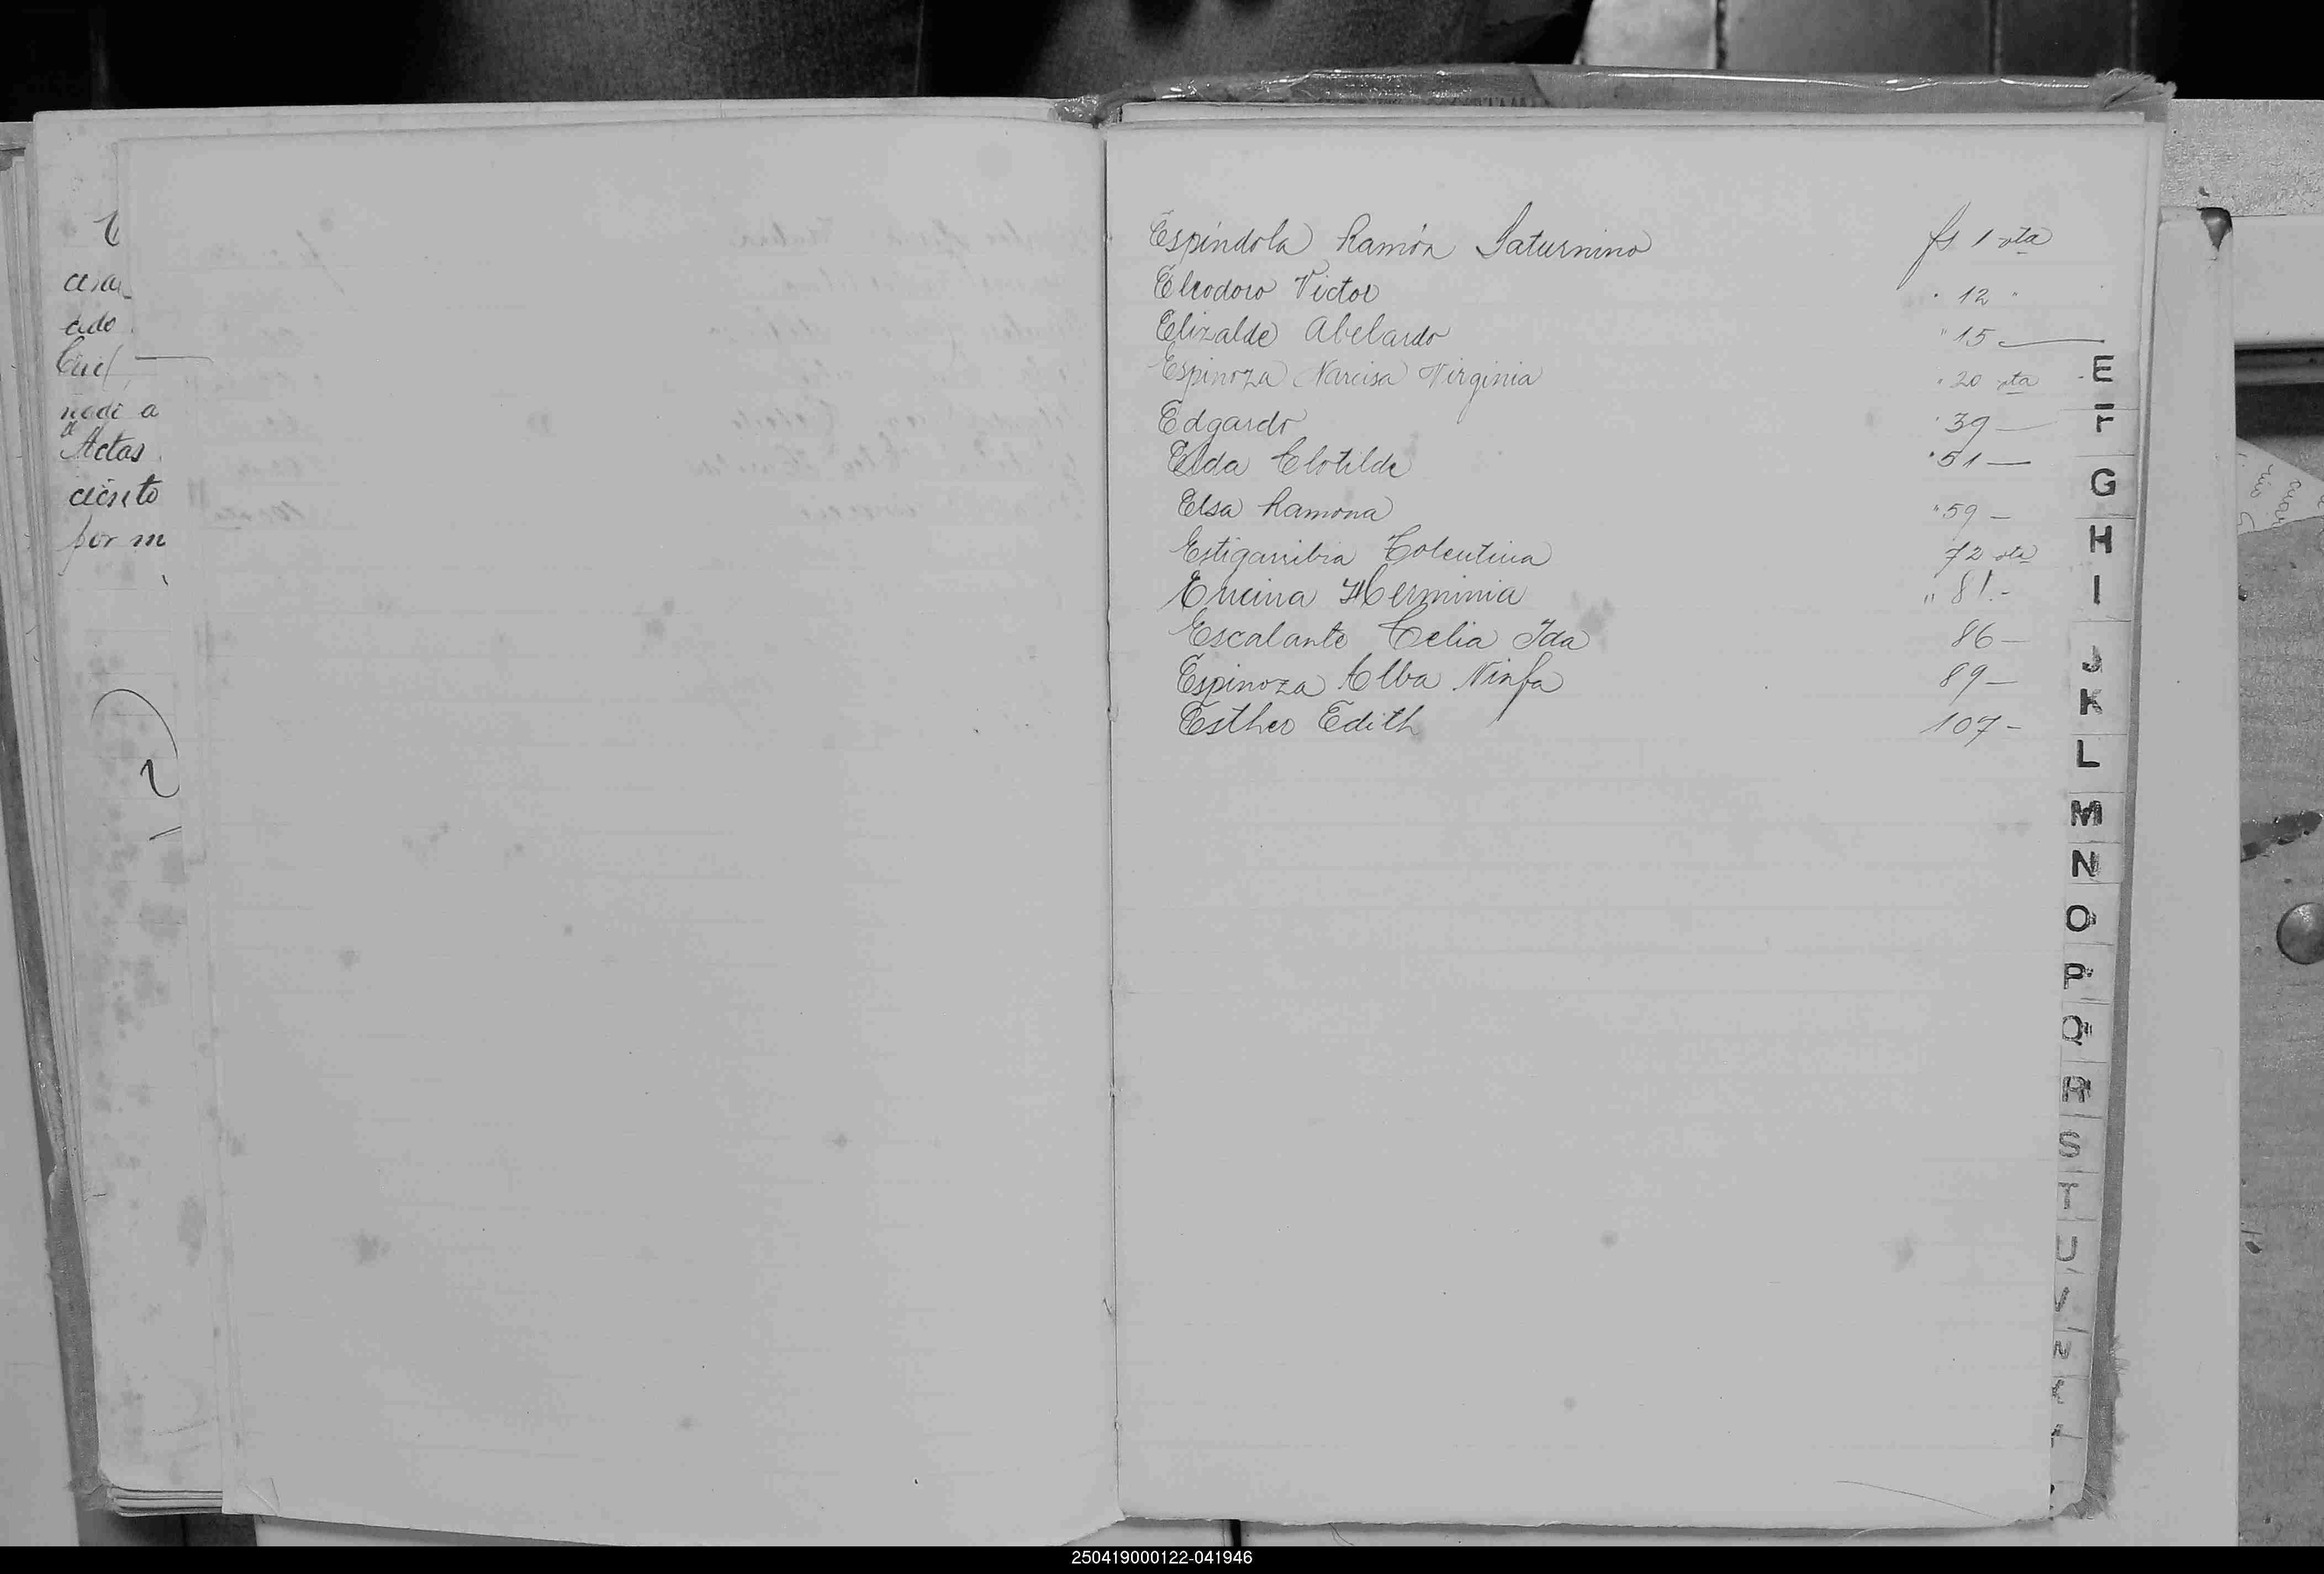 cesar
ado
nadi a
Actas
ciento
por m
Espíndola Ramón Saturnino fs 1 vta
Eleodoro Victor " 12 "
Elizalde Abelardo " 15 —
Espinoza Narcisa Virginia " 20 vta
Edgardo " 39 —
Elda Clotilde " 51 —
Elsa Ramona " 59 —
Estigarribia Colentina 72 vta
Encina Herminia " 81.-
Escalante Celia Ida 86 —
Espinoza Alba Ninfa 89 —
Esther Edith 107 -
E
F
G
H
I
J
K
L
M
N
O
P
Q
R
S
T
U
V
250419000122-041946